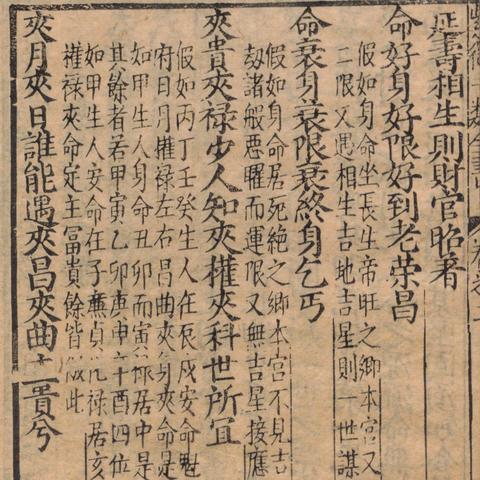 延壽相生則財官昭著
命好身好限好到老荣昌
假如身命坐長生帝旺之鄉本宮又
二限又遇相生吉地吉星則一世謀
命衰身衰限衰終身乞丐
假如身命居死絶之鄉本宮不見吉
刼諸般惡曜而運限又無吉星接應
夾貴夾禄少人知夾權夾科世所宜
假如丙丁壬癸生人在辰戌安命魁
府日月權禄左右昌曲夾身夾命是
如甲生人身命丑卯而寅禄居中是
其餘者若甲寅乙卯庚申辛酉四位
如甲生人安命在子亷貞禄居亥
權禄夾命定主冨貴餘皆倣此
夾月夾日誰能遇夾昌夾曲主貴兮